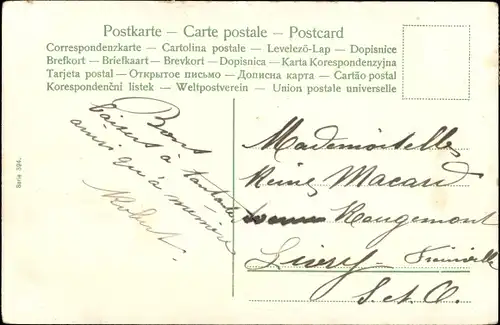 Postkarte — Carte postale — Postcard
Correspondenzkarte — Cartolina postale — Levelező-Lap — Dopisnice
Brefkort — Briefkaart — Brevkort — Dopisnica — Karta Korespondenzyjna
Tarjeta postal — Открытое письмо — Дописна карта — Cartão postal
Korespondenční listek — Weltpostverein — Union postale universelle
Serie 394.
Bons
baisers à tantade
ainsi qu'à mémère
Robert
Mademoiselles
Reine Macaud
Rougemont
Livry - Freinville
S. et O.